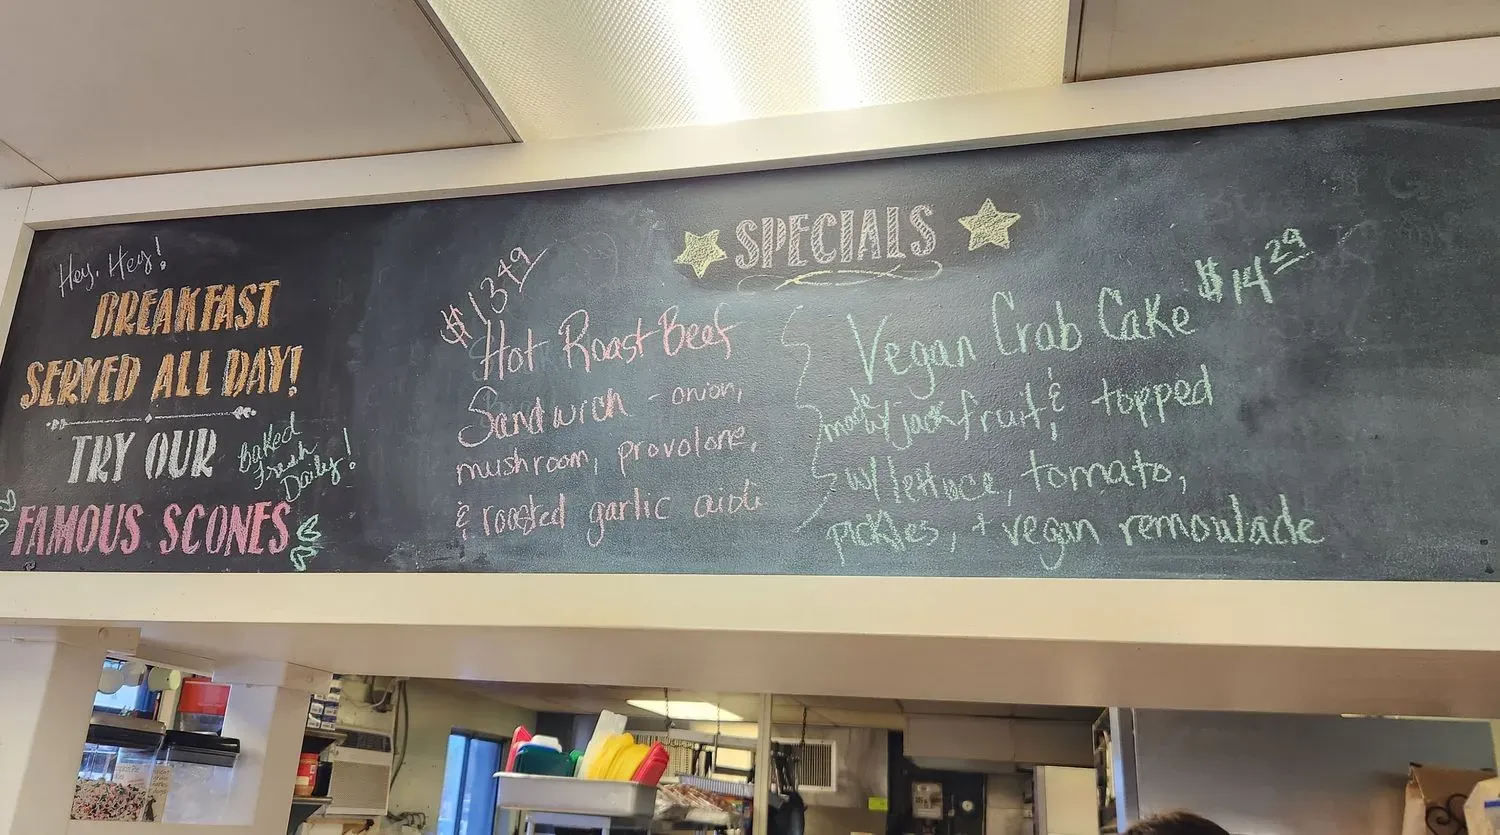 Hey, Hey!
BREAKFAST
SERVED ALL DAY!
TRY OUR
Baked
Fresh
Daily!
FAMOUS SCONES
SPECIALS
$13.49
Hot Roast Beef
Sandwich - onion,
mushroom, provolone,
& roasted garlic aioli
Vegan Crab Cake $14.29
made w/ jackfruit & topped
w/ lettuce, tomato,
pickles, + vegan remoulade